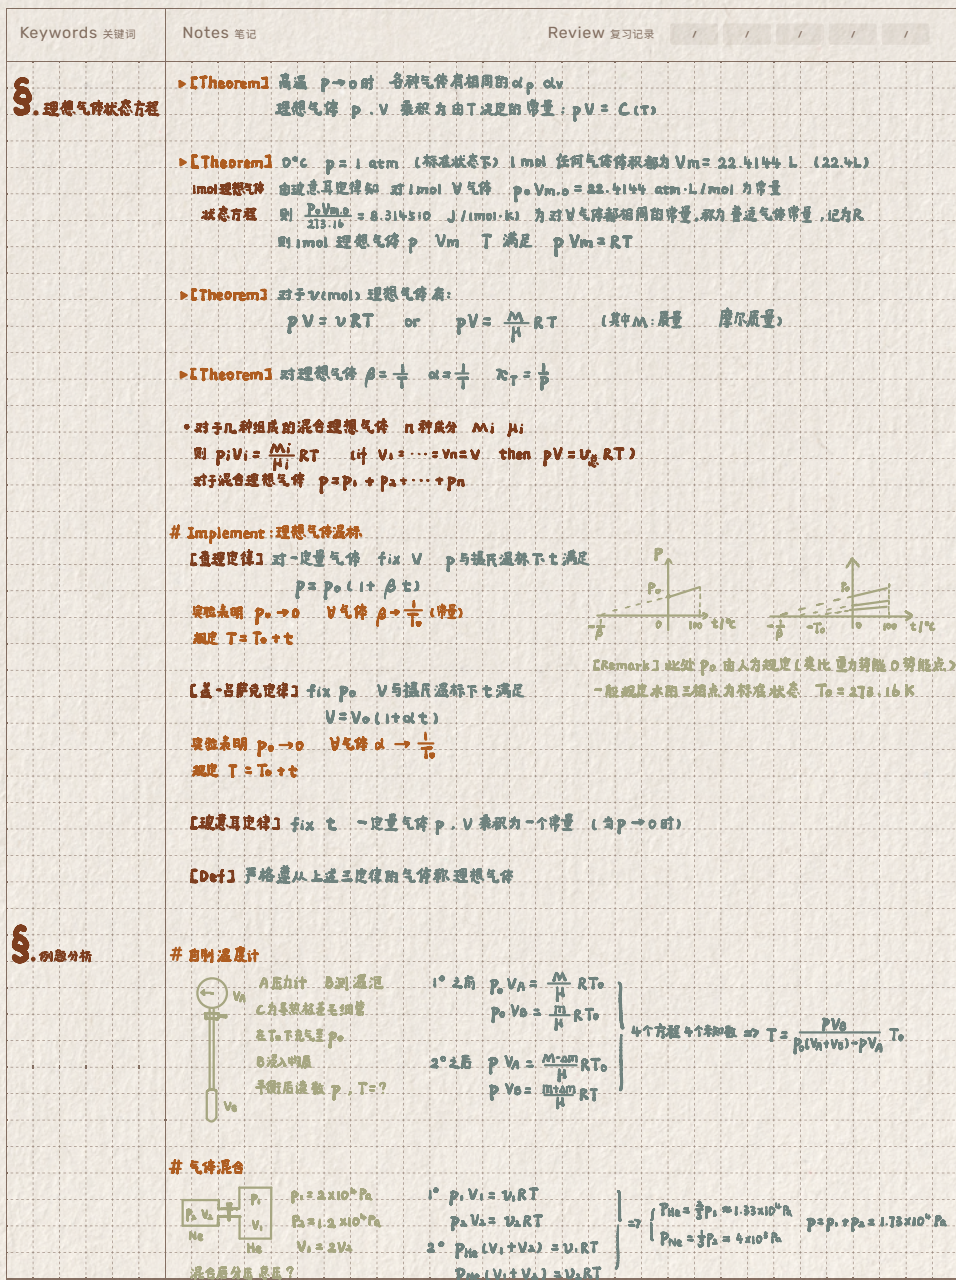 Keywords 关键词 Notes 笔记 Review 复习记录 / / / / /
§. 理想气体状态方程
▸[Theorem] 高温 p→0时 各种气体有相同的αp αv
理想气体 p . V 乘积为由T决定的常量 : pV = C(T)
▸[Theorem] 0°C p = 1 atm (标准状态下) 1 mol 任何气体体积都为 Vm = 22.4144 L (22.4L)
1mol理想气体 由玻意耳定律知 对1mol ∀气体 p₀Vm.0 = 22.4144 atm·L/mol 为常量
状态方程 则 p₀Vm.0/273.16 = 8.314510 J/(mol·K) 为对∀气体都相同的常量,称为普适气体常量,记为R
则 1mol 理想气体 p Vm T 满足 p Vm = RT
▸[Theorem] 对于ν(mol) 理想气体有:
pV = νRT or pV = M/μ RT (其中M:质量 摩尔质量)
▸[Theorem] 对理想气体 β = 1/T α = 1/T κT = 1/p
• 对于几种组成的混合理想气体 n种成分 Mi μi
则 piVi = Mi/μi RT (if V₁ = ··· = Vn = V then pV = ν总 RT )
对于混合理想气体 p = p₁ + p₂ + ··· + pn
# Implement : 理想气体温标
[查理定律] 对一定量气体 fix V p与摄氏温标下t满足
p = p₀ ( 1 + βt )
实验表明 p₀→0 ∀气体 β→1/T₀ (常量)
规定 T = T₀ + t
P P₀ -1/β 0 100 t/°C
P₀ -1/β -T₀ 0 100 t/°C
[Remark] 此处 p₀ 由人为规定(类比重力势能0势能点)
一般规定水的三相点为标准状态 T₀ = 273.16 K
[盖-吕萨克定律] fix p₀ V与摄氏温标下t满足
V = V₀ (1+αt)
实验表明 p₀→0 ∀气体 α → 1/T₀
规定 T = T₀ + t
[玻意耳定律] fix t 一定量气体 p . V 乘积为一个常量 ( 当p→0时)
[Def] 严格遵从上述三定律的气体称理想气体
§. 例题分析
# 自制温度计
VA VB
A压力计 B测温泡
C为导热性差毛细管
在T₀下充气至p₀
B浸入物质
平衡后读数 p , T=?
1° 之前 p₀ VA = M/μ RT₀
p₀ VB = m/μ RT₀
2° 之后 p VA = M-Δm/μ RT₀
p VB = m+Δm/μ RT
4个方程 4个未知数 => T = pVB/p₀(VA+VB)-pVA T₀
# 气体混合
P₂ V₂ Ne P₁ V₁ He
p₁ = 2×10⁶ Pa
P₂ = 1.2 ×10⁶ Pa
V₁ = 2V₂
混合后分压 总压?
1° p₁ V₁ = ν₁RT
p₂ V₂ = ν₂RT
2° PHe (V₁+V₂) = ν₁ RT
PNe (V₁+V₂) = ν₂ RT
=> PHe = 2/3 p₁ ≈ 1.33×10⁶ Pa
PNe = 1/3 P₂ = 4×10⁵ Pa
p = p₁ + p₂ = 1.73×10⁶ Pa